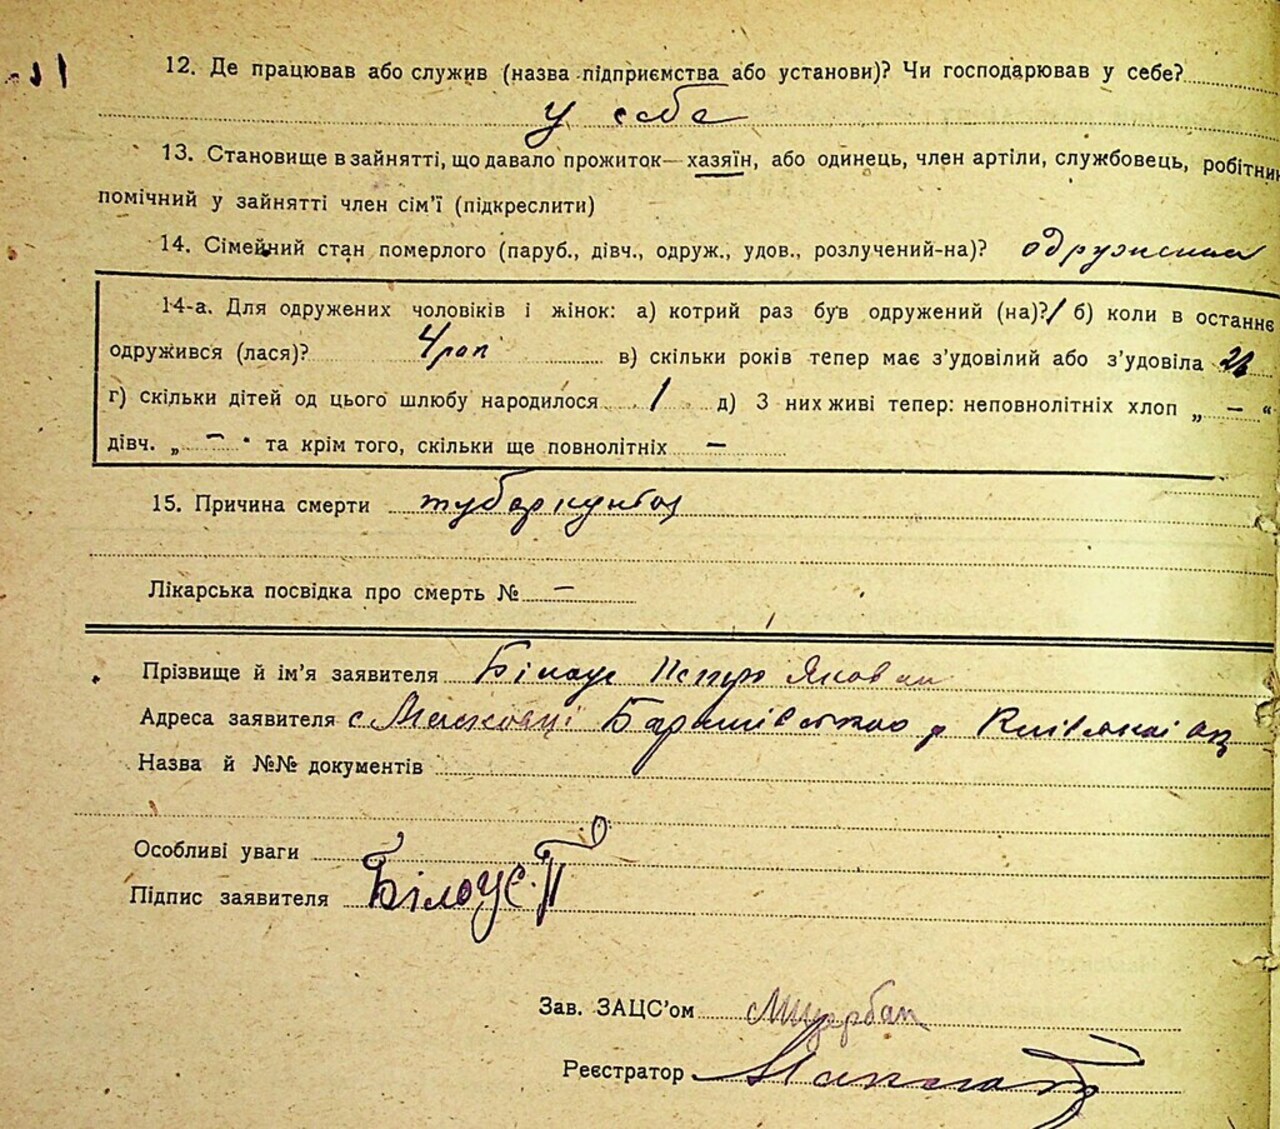 12. Де працював або служив (назва підприємства або установи)? Чи господарював у себе?
у себе
13. Становище в зайнятті, що давало прожиток— хазяїн, або одинець, член артіли, службовець, робітник
помічний у зайнятті член сім'ї (підкреслити)
14. Сімейний стан померлого (паруб., дівч., одруж., удов., розлучений-на)? одружений
14-а. Для одружених чоловіків і жінок: а) котрий раз був одружений (на)? 1 б) коли в останнє
одружився (лася)? в) скільки років тепер має з'удовілий або з'удовіла
г) скільки дітей од цього шлюбу народилося 1 д) З них живі тепер: неповнолітніх хлоп „ — “
дівч. „ — " та крім того, скільки ще повнолітніх —
15. Причина смерти туберкульоз
Лікарська посвідка про смерть № —
Прізвище й ім'я заявителя Білоус Петро Якович
Адреса заявителя с Масковці Баришівського р Київської
Назва й №№ документів
Особливі уваги
Підпис заявителя Білоус. П
Зав. ЗАЦС'ом
Реєстратор